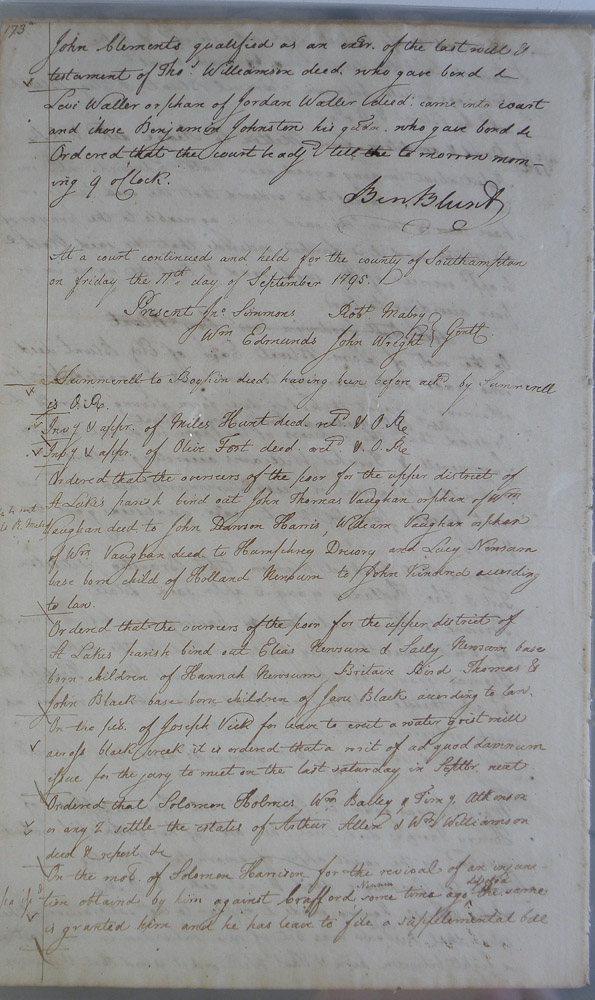 173
John Clements qualified as an exor. of the last will &
testament of Thos. Williamson deed. who gave bond &
Levi Waller orphan of Jordan Waller deed. came into court
and chose Benjamin Johnston his gudn. who gave bond &c
Ordered that the court be adjd. till the to morrow morn-
ing 9 o'Clock.
Ben. Blunt
At a court continued and held for the county of Southampton
on friday the 11th day of September 1795.
Present Jno. Simmons Robt. Mabry
Wm Edmunds John Wright Gentl.
Summerell to Boykin deed. having been before ackd. by Summerell
is O. R.
Invy. & appr. of Miles Hunt deed. retd. & O. Re
Invy. & appr. of Olive Fort deed. retd. & O. Re
Ordered that the overseers of the poor for the upper district of
St Lukes parish bind out John Thomas Vaughan orphan of Wm
Vaughan deed to John Dawson Harris, William Vaughan orphan
of Wm. Vaughan deed to Humphrey Drewry and Lucy Newsum
base born child of Holland Newsum to John Kindred according
to law.
Ordered that the overseers of the poor for the upper district of
St Lukes parish bind out Elias Newsum & Sally Newsum base
born children of Hannah Newsum, Britain Bird Thomas &
John Black base born children of Black according to law.
On the pet. of Joseph Vick for leave to erect a water grist mill
across black creek it is ordered that a writ of ad quod damnum
issue for the jury to meet on the last saturday in Septbr. next
Ordered that Solomon Holmes, Wm Bailey & Atkinson
or any 2 settle the estates of Arthur Allen & Wm Williamson
deed & report &c
On the mot. of Solomon Harrison for the revival of an injunc-
tion obtaind by him against Crafford some time ago the same
is granted him and he has leave to file a supplemental bill